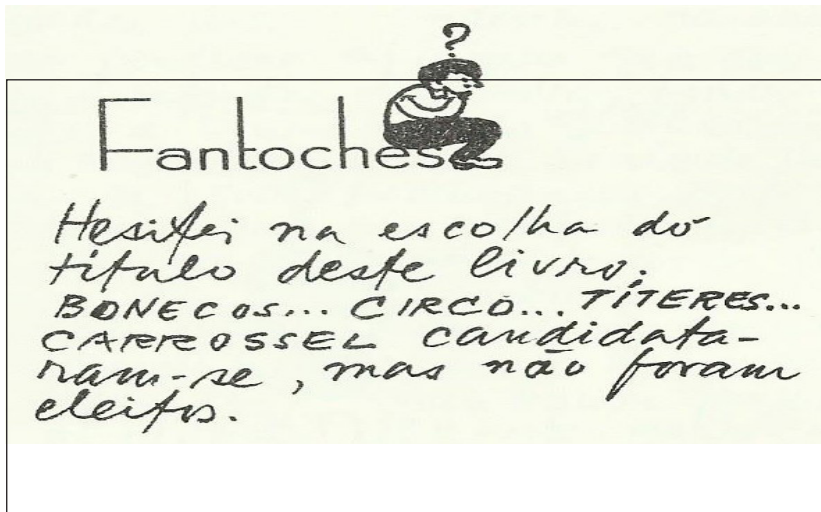 ?
Fantoches
Hesitei na escolha do
título deste livro.
BONECOS... CIRCO... TÍTERES...
CARROSSEL candidata-
ram-se, mas não foram
eleitos.